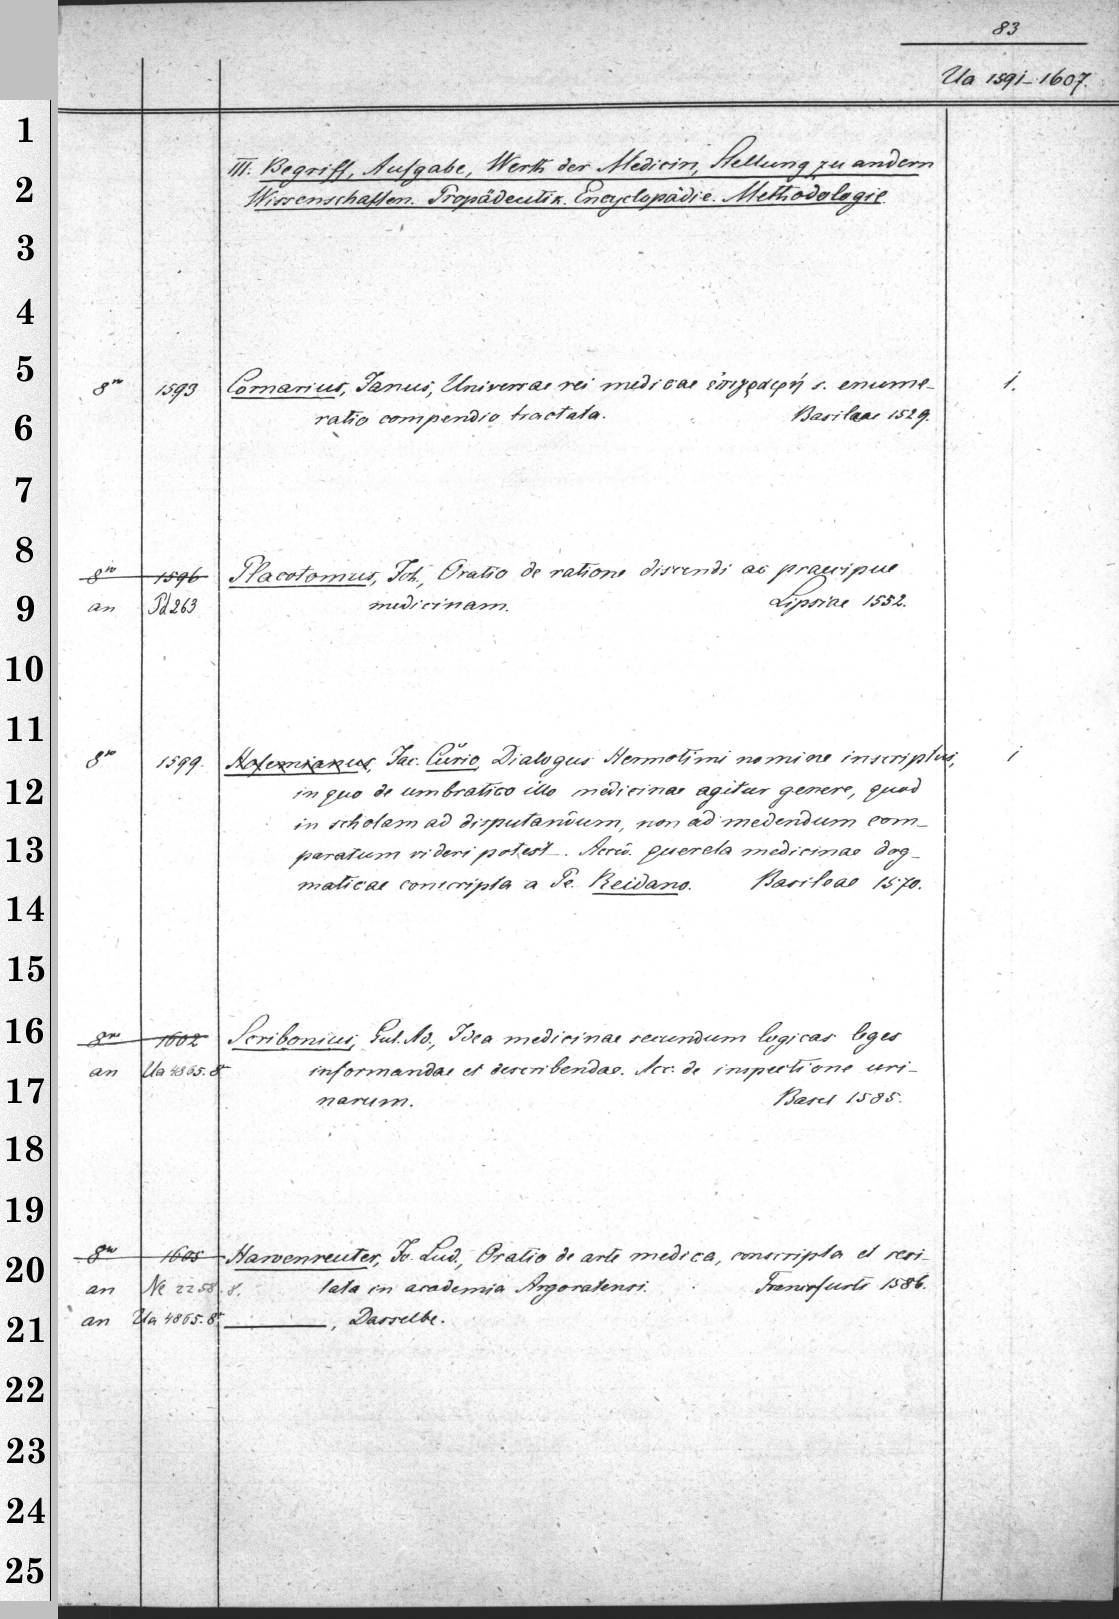 83
Ua 1591-1607.
1
2
3
4
5
6
7
8
9
10
11
12
13
14
15
16
17
18
19
20
21
22
23
24
25
III. Begriff, Aufgabe, Werth der Medicin, Stellung zu andern
Wissenschaften. Propädeutik. Encyclopädie. Methodologie
8vo 1593 Cornarius, Janus, Universae rei medicae ἐπιγραφή s. enume- i.
ratio compendio tractata. Basileae 1529.
8vo 1596 Placotomus, Joh., Oratio de ratione discendi ac praecipue
an Pd 263 medicinam. Lipsiae 1552.
8vo 1599. Hofemianus, Jac. Curio, Dialogus Hermotimi nomine inscriptus, i
in quo de umbratico illo medicinae agitur genere, quod
in scholam ad disputandum, non ad medendum com-
paratum videri potest. Accd. querela medicinae dog-
maticae conscripta a Pe. Reidano. Basileae 1570.
8vo 1602 Scribonius, Gul. Ad., Idea medicinae secundum logicas leges
an Ua 4865.8° informandae et describendae. Acc. de inspectione uri-
narum. Basel 1585.
8vo 1605 Hawenreuter, Jo. Lud., Oratio de arte medica, conscripta et reci-
an Ne 2258.8. tata in academia Argoratensi. Francofurti 1586.
an Ua 4865.8° ———, Dasselbe.